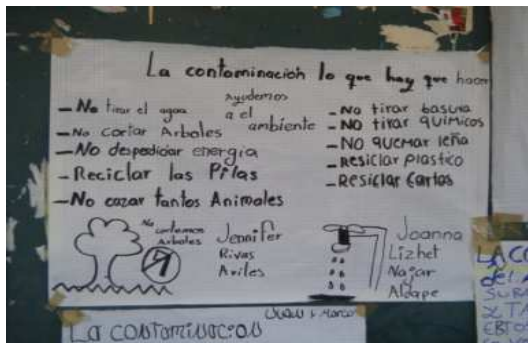 La contaminación lo que hay que hacer
Ayudemos
a el
ambiente
- No tirar el agua
- No cortar Arboles
- No despediciar energia
- Reciclar las Pilas
- No cazar tantos Animales
- No tirar basura
- NO tirar QUIMICOS
- NO QUEMAR leña
- Resiclar plastico
- Resiclar Cartos
No
cortemos
Arboles
Jennifer
Rivas
Aviles
Joanna
Lizhet
Najar
Aldape
La contaminacion
LA CO